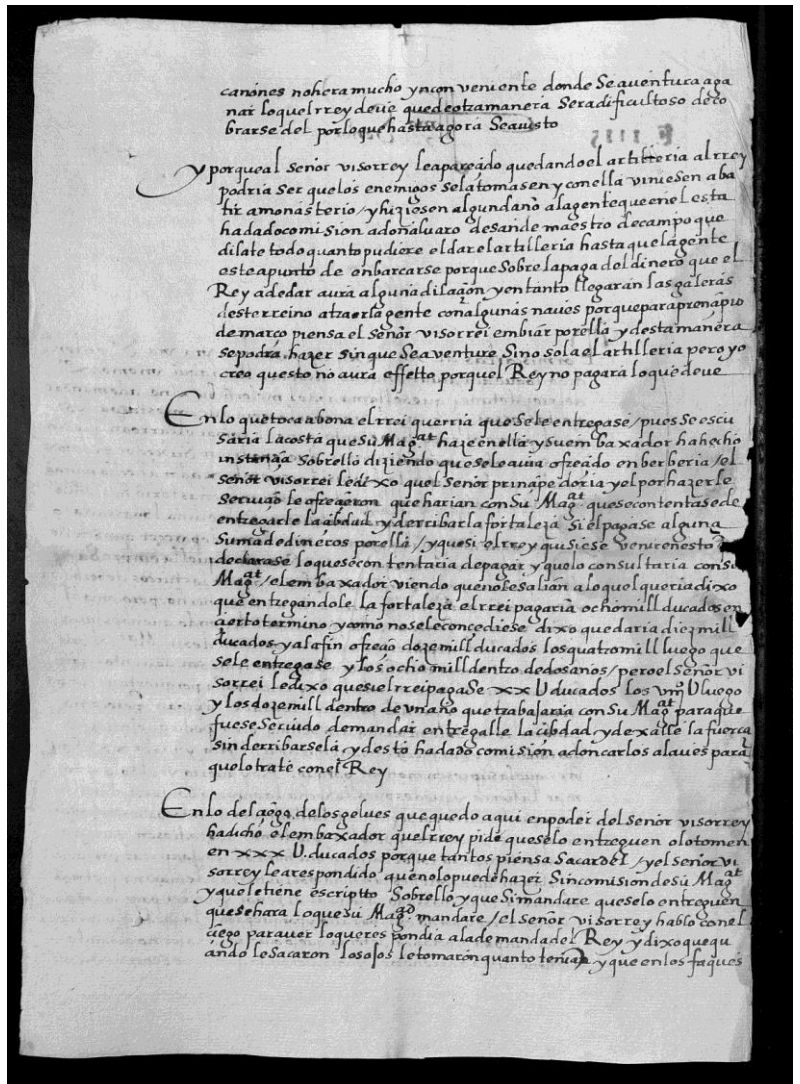 canones no hera mucho ynconveniente donde Se aventura aga
nar lo quel rrey deve que de otra manera Sera dificultoso de co
brarse del por lo que hasta agora Sea visto
y porque al Señor visorrey le a pareçido quedando el artilleria al rrey
podria Ser que los enemigos Sela tomasen y con ella viniesen a ba
tir a monasterio / y hiziesen algun daño ala gente que en el esta
ha dado comision a don alvaro de sande maestro de campo que
dilate todo quanto pudiere el dar el artilleria hasta que la gente
este a punto de enbarcarse porque Sobre la paga del dinero que el
Rey a de dar aura alguna dilaçion y en tanto llegaran las galeras
deste rreino a traer la gente con algunas naves porque para prençipio
de março piensa el Señor visorrei embiar por ella y desta manera
se podra hazer sin que Se aventure Sino sola el artilleria pero yo
creo questo no aura effetto porquel Rey no pagara lo que deve
En lo que toca a bona el rrei querria que Se le entregase / pues Se escu
saria la costa que Su Mag.at haze en ella y su embaxador ha hecho
instançia Sobrello diziendo que Se le avia ofreçido en berberia / el
señor visorrei le dixo quel Señor prinçipe doria y el por hazerle
Serviçio le ofreçieron que harian con Su Mag.at que se contentase de
entregarle la çibdad y derribar la fortaleza Si el pagase alguna
Suma de dineros por ella / y que si el rrey quisiese venir en esto
declarase lo que Se contentaria de pagar y que lo consultaria con Su
Mag.at / el embaxador viendo que no le Salian a lo quel queria dixo
que entregandole la fortaleza el rrei pagaria ocho mill ducados en
çierto termino y como no se le conçediese dixo que daria diez mill
ducados y ala fin ofreçio doze mill ducados los quatro mill luego que
se le entregase y los ocho mill dentro de dos años / pero el Señor vi
sorrei le dixo que si el rrei pagase xx U ducados los viij U luego
y los doze mill dentro de un año que trabajaria con Su Mag.at para que
fuese Servido de mandar entregalle la çibdad y dexalle la fuerça
sin derribarsela y desto ha dado comision a don carlos alaves para
que lo trate con el Rey
En lo del çiego de los gelves que quedo aqui en poder del Señor visorrey
ha dicho el embaxador quel rrey pide que se lo entreguen o lo tomen
en xxx U. ducados porque tantos piensa Sacar del / y el señor vi
sorrey le a respondido que no lo puede hazer Sin comision de Su Mag.at
y que le tiene escriptto Sobrello y que Si mandare que se lo entreguen
que se hara lo que Su Mag.d mandare / el señor visorrey hablo con el
çiego para ver lo que respondia ala demanda del Rey y dixo que qu
ando le Sacaron los ojos le tomaron quanto tenia y que en los